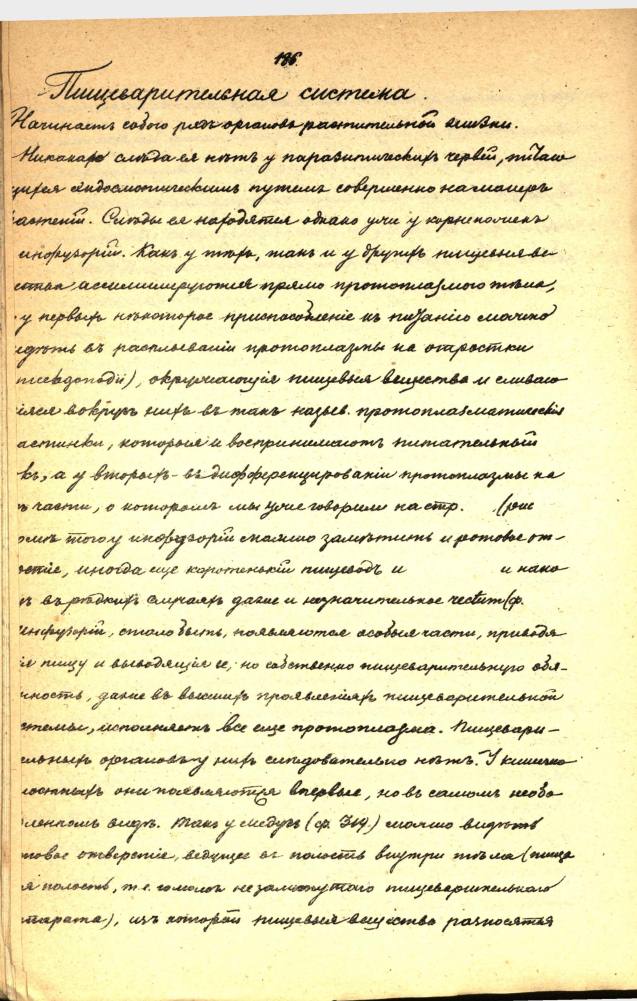 136.
Пищеварительная система.
Начинаетъ собою рядъ органовъ растительной жизни.
Никакого слѣда ея нѣтъ у паразитическихъ червей, питаю
щихся эндосмотическимъ путемъ совершенно на манеръ
растеній. Слѣды ея находятся однако уже у корненожекъ
инфузорій. Какъ у тѣхъ, такъ и у другихъ пищевыя ве
ства ассимилируются прямо протоплазмою тѣла,
у первыхъ нѣкоторое приспособленіе къ питанію можно
идѣть въ расплываніи протоплазмы на отростки
псевдоподіи), окружающія пищевыя вещества и сливаю
іяся вокругъ нихъ въ такъ назыв. протоплазматическія
астинки, которыя и воспринимаютъ питательный
къ, а у вторыхъ - въ дифференцированіи протоплазмы на
ъ части, о которомъ мы уже говорили на стр. (
омѣ того у инфузорій можно замѣтить и ротовое от-
стіе, иногда еще коротенькій пищеводъ и и нако
ъ въ рѣдкихъ случаяхъ даже и незначительное (ф.
инфузорій, стало быть, появляются особыя части, приводя
ія пищу и выводящія ее, но собственно пищеварительную обя-
нность, даже въ высшихъ проявленіяхъ пищеварительной
стемы, исполняетъ все еще протоплазма. Пищевари-
ельныхъ органовъ у нихъ слѣдовательно нѣтъ. У кишечно
лостныхъ они появляются впервые, но въ самомъ необо
бленномъ видѣ. Такъ у медузъ (ф. 314.) можно видѣть
товое отверстіе, ведущее въ полость внутри тѣла (пище
я полость, т. е. гомологъ незамкнутого пищеварительнаго
парата), изъ которой пищевыя вещества разносятся